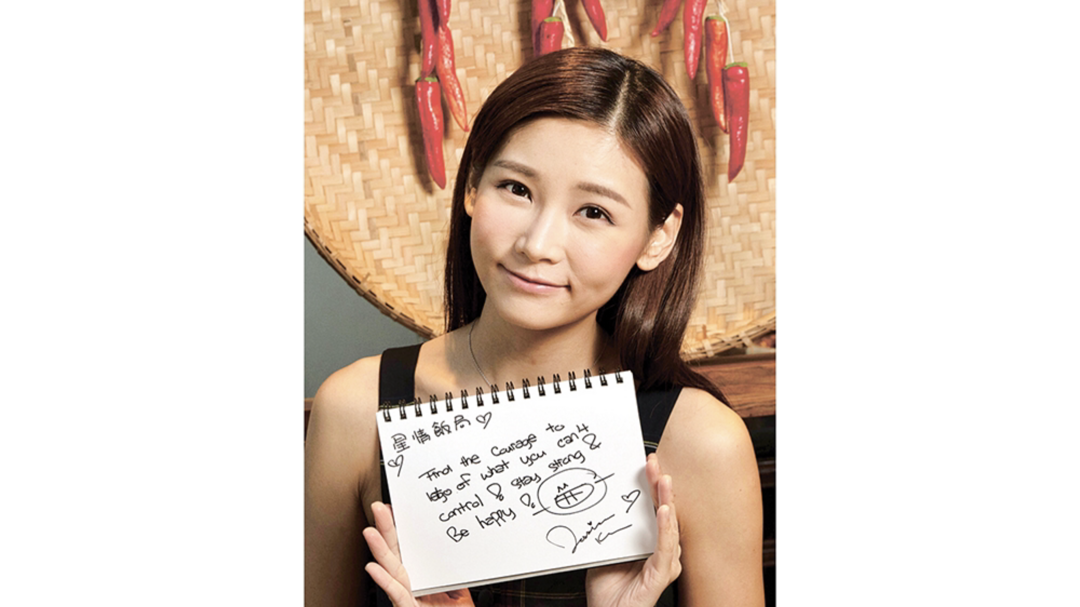 星情飯局
Find the courage to
letgo of what you can't
control & stay strong &
Be happy